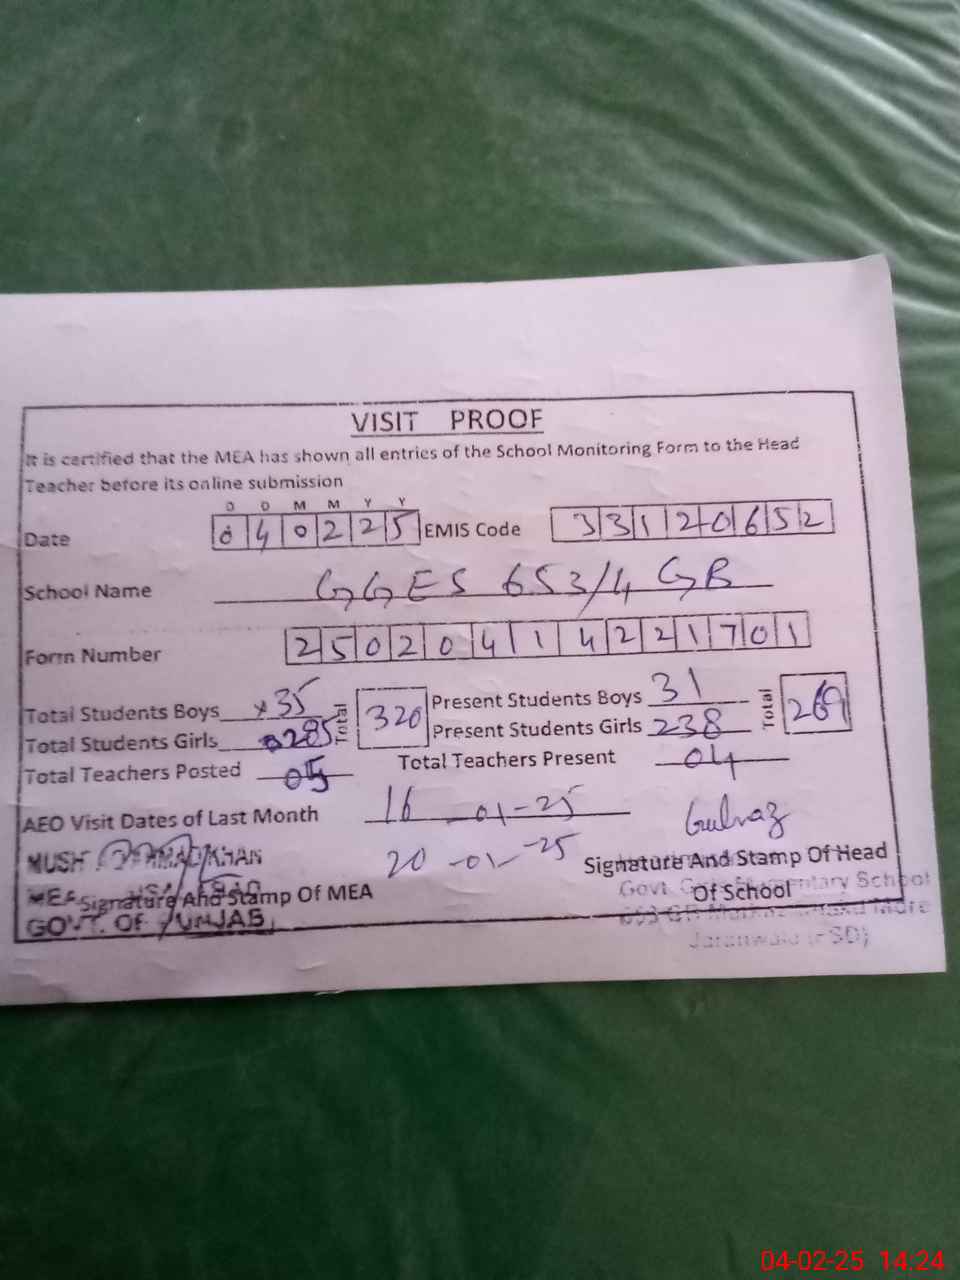 VISIT PROOF
It is certified that the MEA has shown all entries of the School Monitoring Form to the Head
Teacher before its online submission
D D M M Y Y
Date 040225 EMIS Code 33120652
School Name GGES 653/4 GB
Form Number 25020414221701
Total Students Boys 35 Total 320 Present Students Boys 31 Total 269
Total Students Girls 285 Present Students Girls 238
Total Teachers Posted 05 Total Teachers Present 04
AEO Visit Dates of Last Month 16-01-25
20-01-25
Gulnaz
KHAN
MEA
Signature And Stamp Of MEA
GOVT. OF PUNJAB
Signature And Stamp Of Head
Of School
Govt. Elementary School
653 GB More
Jaranwala (FSD)
04-02-25 14:24